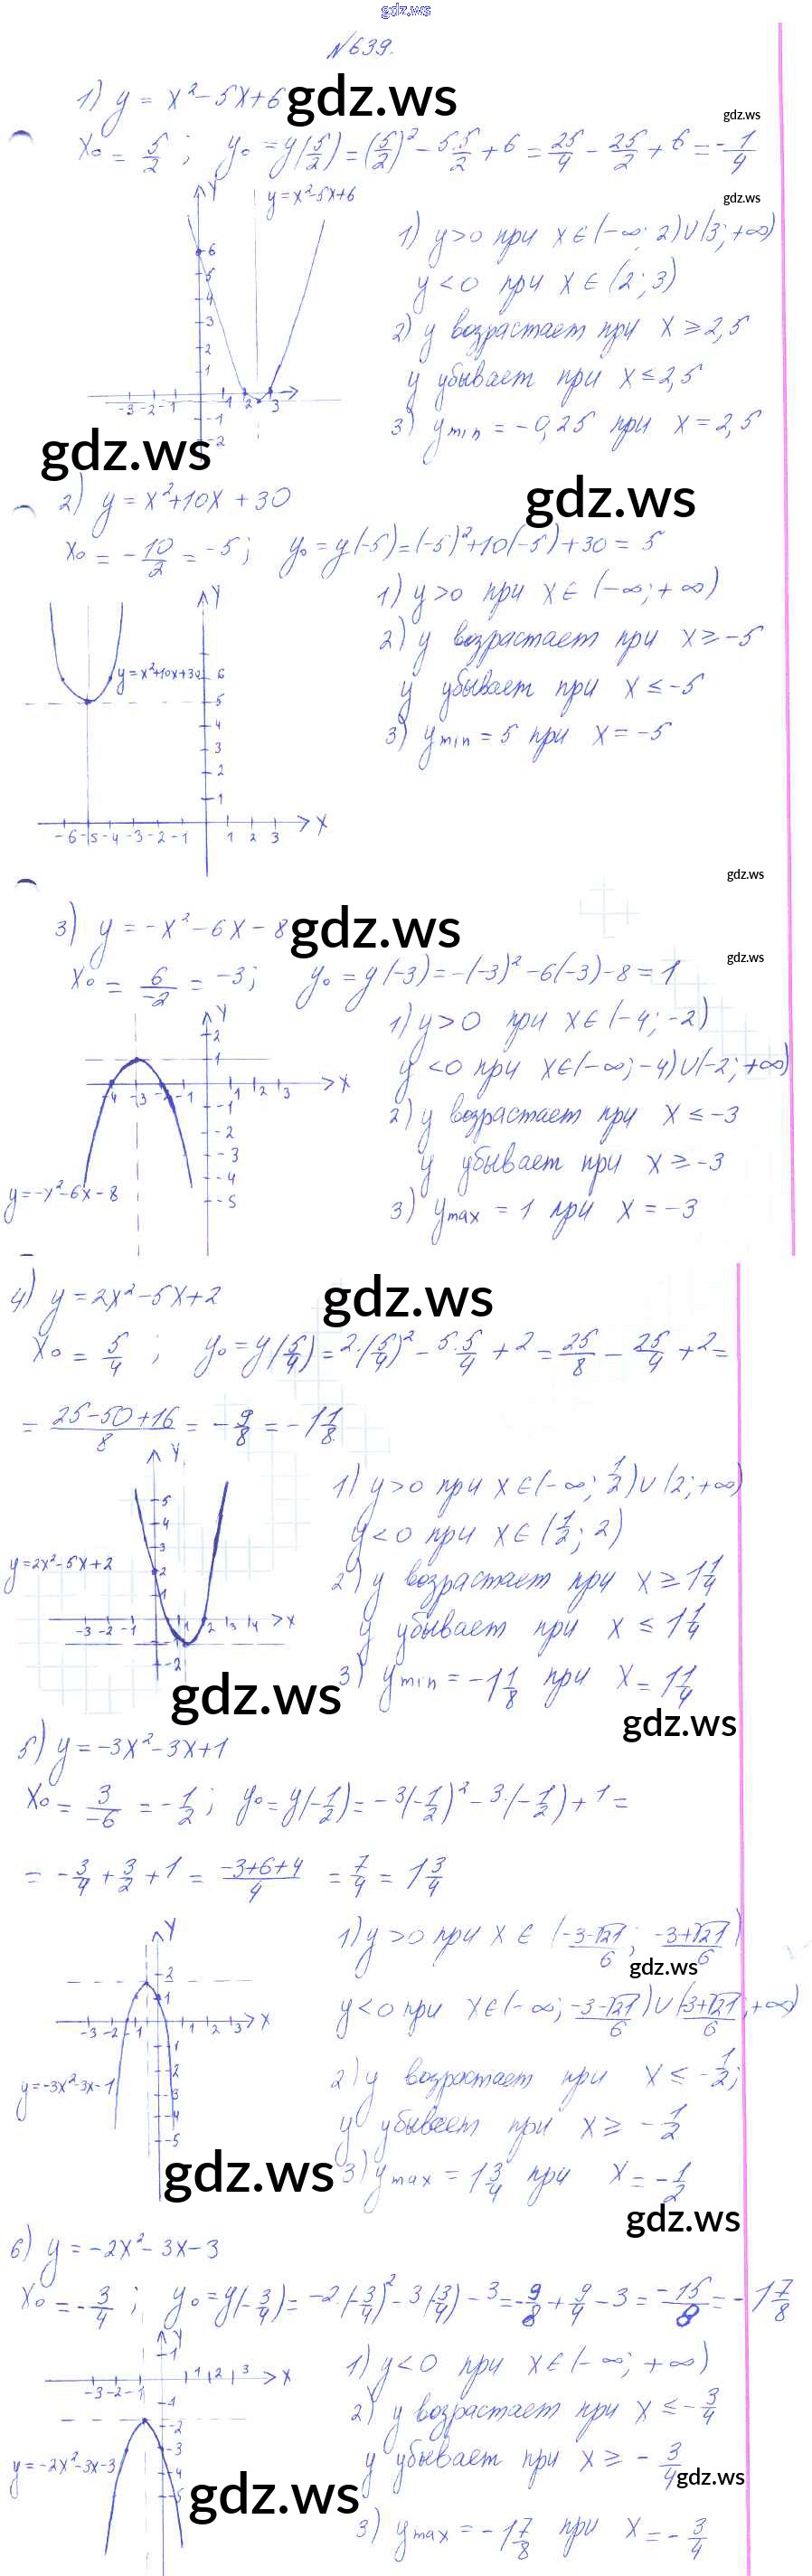 gdz.ws
№639.
1) y = x² - 5x + 6 gdz.ws
gdz.ws
x₀ = 5/2 ; y₀ = y(5/2) = (5/2)² - 5·5/2 + 6 = 25/4 - 25/2 + 6 = -1/4
y = x² - 5x + 6
gdz.ws
1) y > 0 при x ∈ (-∞; 2) ∪ (3; +∞)
y < 0 при x ∈ (2; 3)
2) y возрастает при x ≥ 2,5
y убывает при x ≤ 2,5
3) y min = -0,25 при x = 2,5
gdz.ws
gdz.ws
2) y = x² + 10x + 30
x₀ = -10/2 = -5; y₀ = y(-5) = (-5)² + 10(-5) + 30 = 5
1) y > 0 при x ∈ (-∞; +∞)
2) y возрастает при x ≥ -5
y = x² + 10x + 30
y убывает при x ≤ -5
3) y min = 5 при x = -5
gdz.ws
3) y = -x² - 6x - 8 gdz.ws
gdz.ws
x₀ = 6/-2 = -3; y₀ = y(-3) = -(-3)² - 6(-3) - 8 = 1
1) y > 0 при x ∈ (-4; -2)
y < 0 при x ∈ (-∞; -4) ∪ (-2; +∞)
2) y возрастает при x ≤ -3
y убывает при x ≥ -3
y = -x² - 6x - 8
3) y max = 1 при x = -3
4) y = 2x² - 5x + 2 gdz.ws
x₀ = 5/4 ; y₀ = y(5/4) = 2·(5/4)² - 5·5/4 + 2 = 25/8 - 25/4 + 2 =
= 25-50+16/8 = -9/8 = -1 1/8
1) y > 0 при x ∈ (-∞; 1/2) ∪ (2; +∞)
y < 0 при x ∈ (1/2; 2)
y = 2x² - 5x + 2
2) y возрастает при x ≥ 1 1/4
y убывает при x ≤ 1 1/4
3) y min = -1 1/8 при x = 1 1/4
gdz.ws
gdz.ws
5) y = -3x² - 3x + 1
x₀ = 3/-6 = -1/2 ; y₀ = y(-1/2) = -3(-1/2)² - 3·(-1/2) + 1 =
= -3/4 + 3/2 + 1 = -3+6+4/4 = 7/4 = 1 3/4
1) y > 0 при x ∈ (-3-√21/6; -3+√21/6)
gdz.ws
y < 0 при x ∈ (-∞; -3-√21/6) ∪ (-3+√21/6; +∞)
2) y возрастает при x ≤ -1/2;
y = -3x² - 3x - 1
y убывает при x ≥ -1/2
3) y max = 1 3/4 при x = -1/2
gdz.ws
gdz.ws
6) y = -2x² - 3x - 3
x₀ = -3/4 ; y₀ = y(-3/4) = -2·(-3/4)² - 3(-3/4) - 3 = -9/8 + 9/4 - 3 = -15/8 = -1 7/8
1) y < 0 при x ∈ (-∞; +∞)
2) y возрастает при x ≤ -3/4
y = -2x² - 3x - 3
y убывает при x ≥ -3/4
gdz.ws
gdz.ws
3) y max = -1 7/8 при x = -3/4